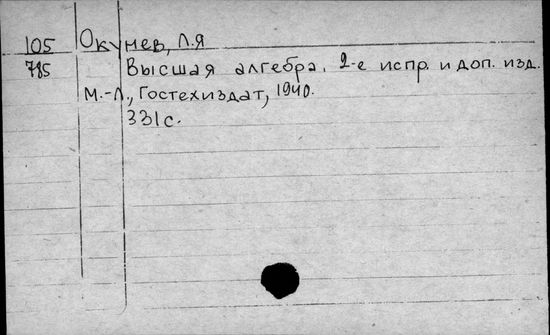 105 Окунев, Л.Я
785 Высшая алгебра. 2-е испр. и доп. изд.
М.-Л., Гостехиздат, 1940.
331с.